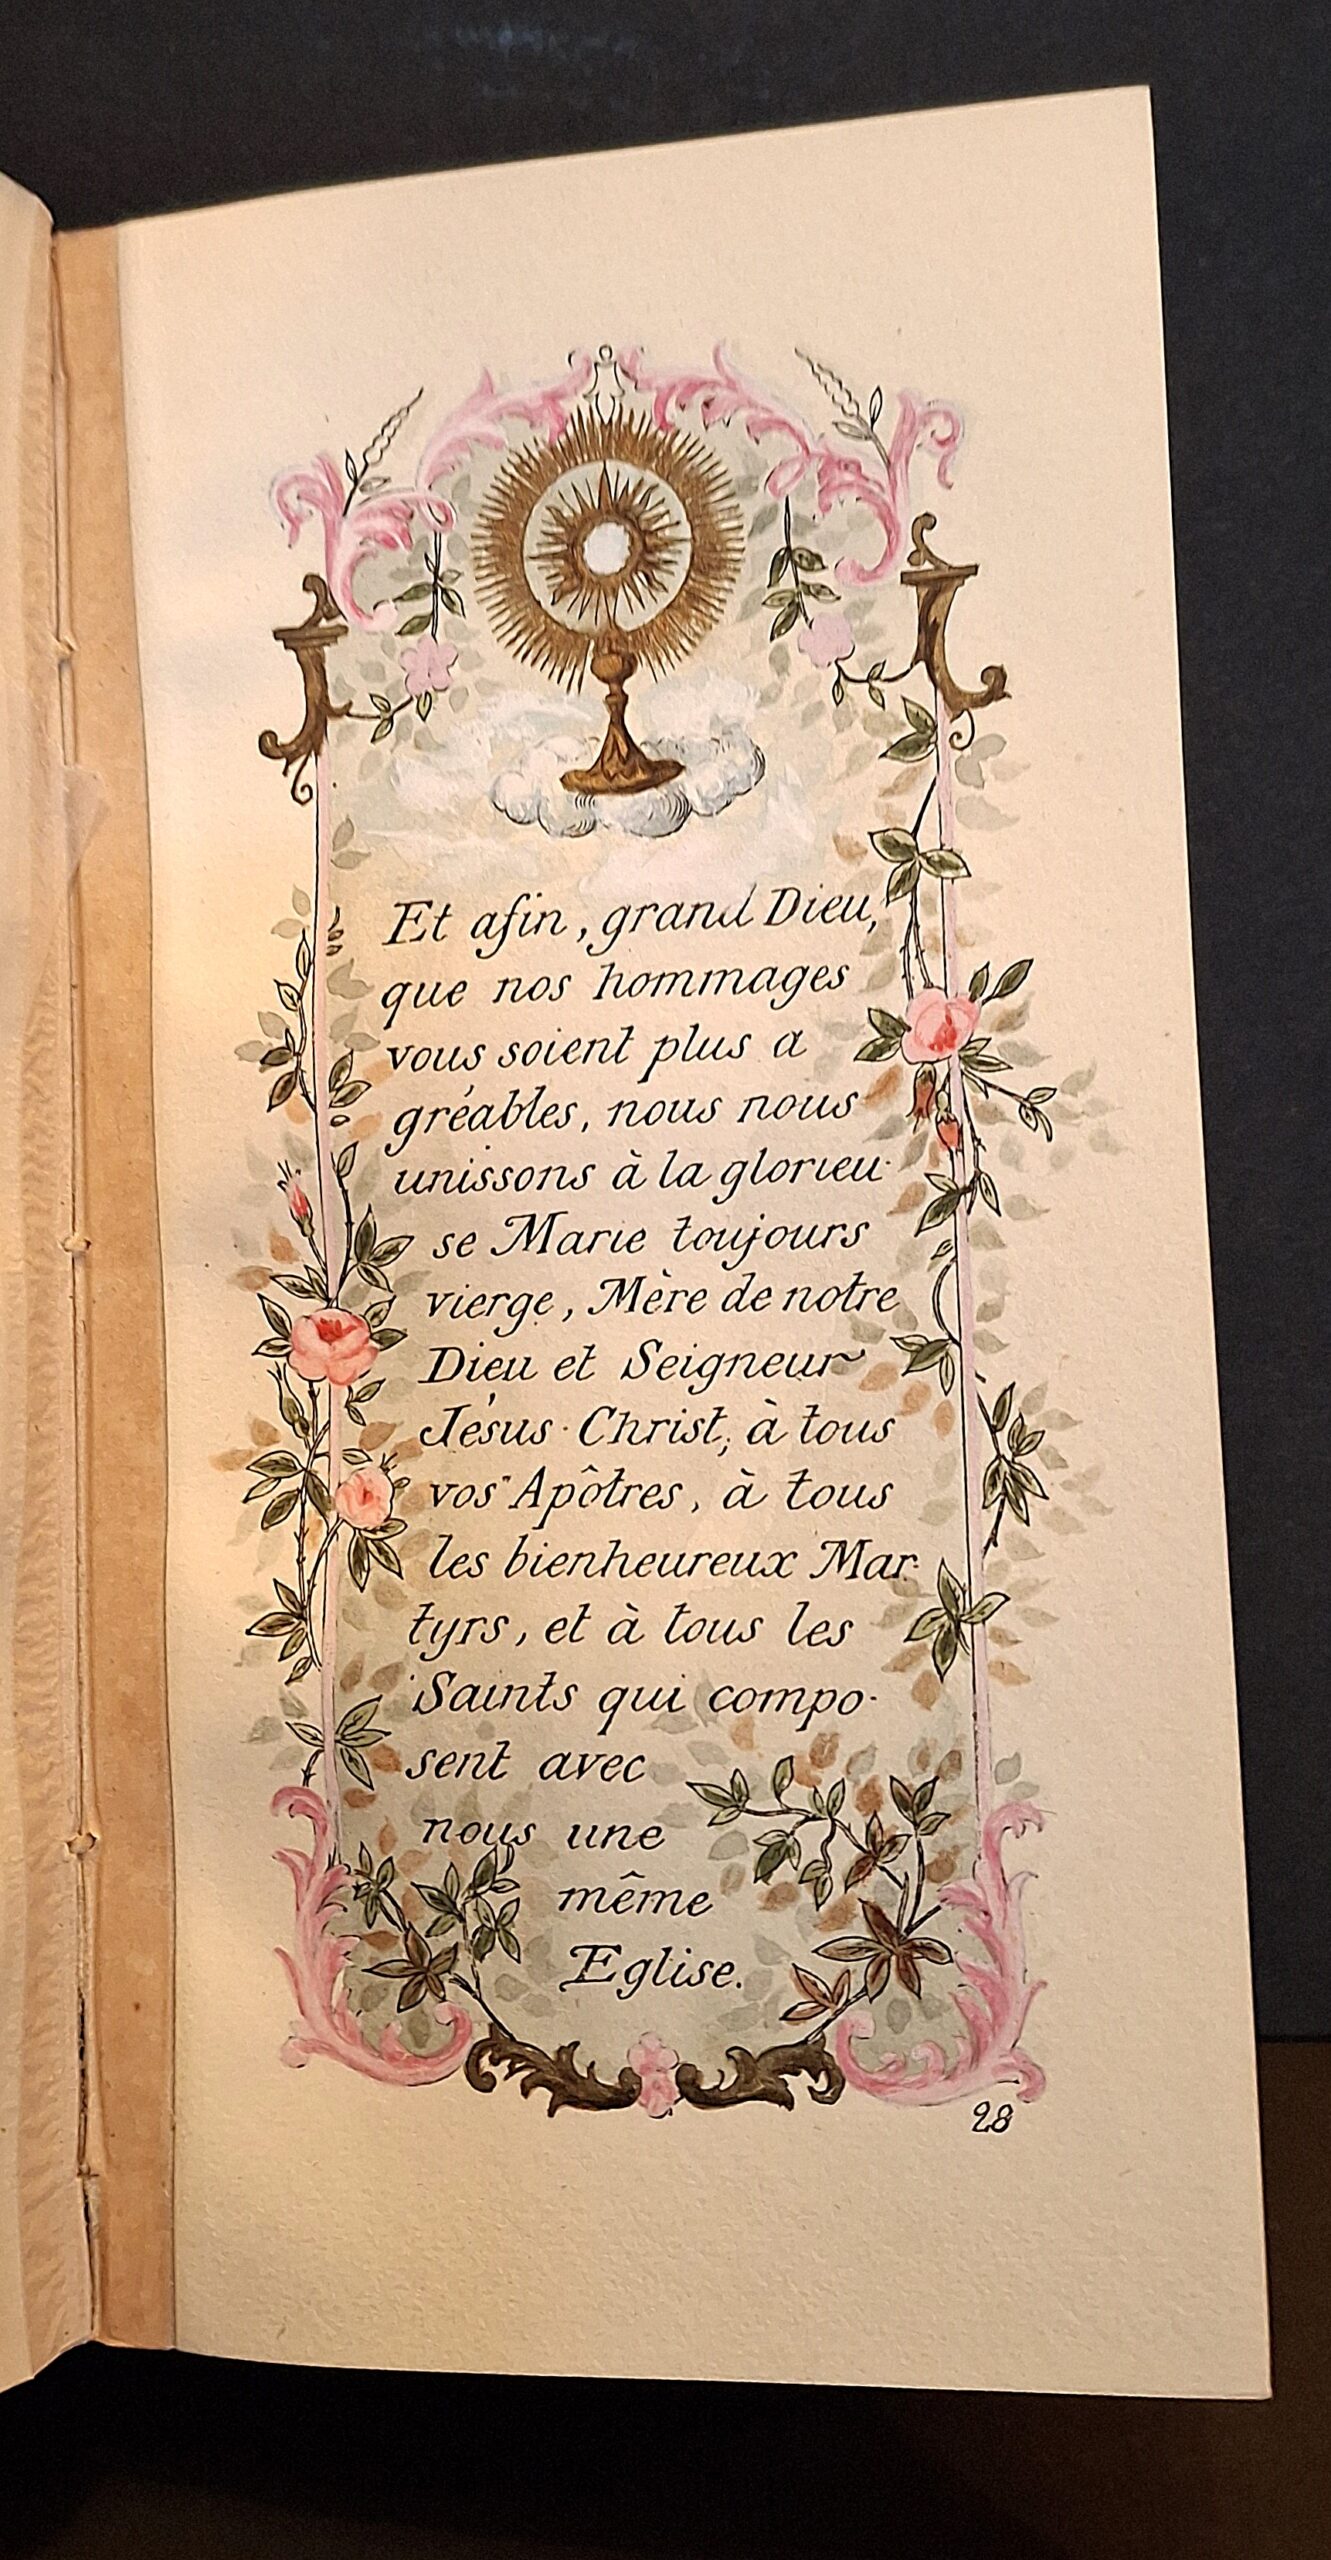 Et afin, grand Dieu,
que nos hommages
vous soient plus a
gréables, nous nous
unissons à la glorieu-
se Marie toujours
vierge, Mère de notre
Dieu et Seigneur
Jésus-Christ, à tous
vos Apôtres, à tous
les bienheureux Mar-
tyrs, et à tous les
Saints qui compo-
sent avec
nous une
même
Eglise.
28